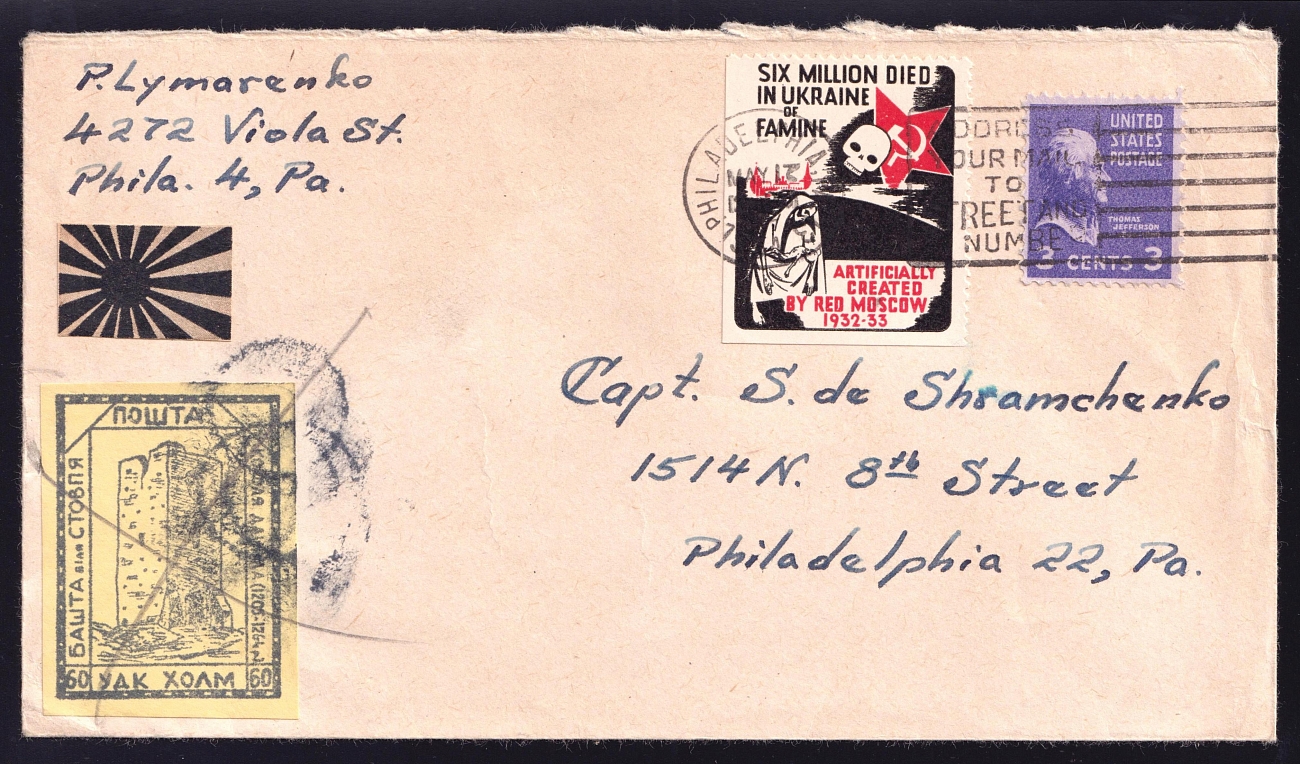 P. Lymarenko
4272 Viola St.
Phila. 4, Pa.
SIX MILLION DIED
IN UKRAINE
OF
FAMINE
ARTIFICIALLY
CREATED
BY RED MOSCOW
1932-33
PHILADELPHIA
MAY 12
UNITED
STATES
POSTAGE
THOMAS
JEFFERSON
3 CENTS 3
YOUR MAIL
TO
STREET AND
Capt. S. de Shramchenko
1514 N. 8th Street
Philadelphia 22, Pa.
ПОШТА
БАШТА БІЛЯ СТОВПЯ
60 УДК ХОЛМ 60